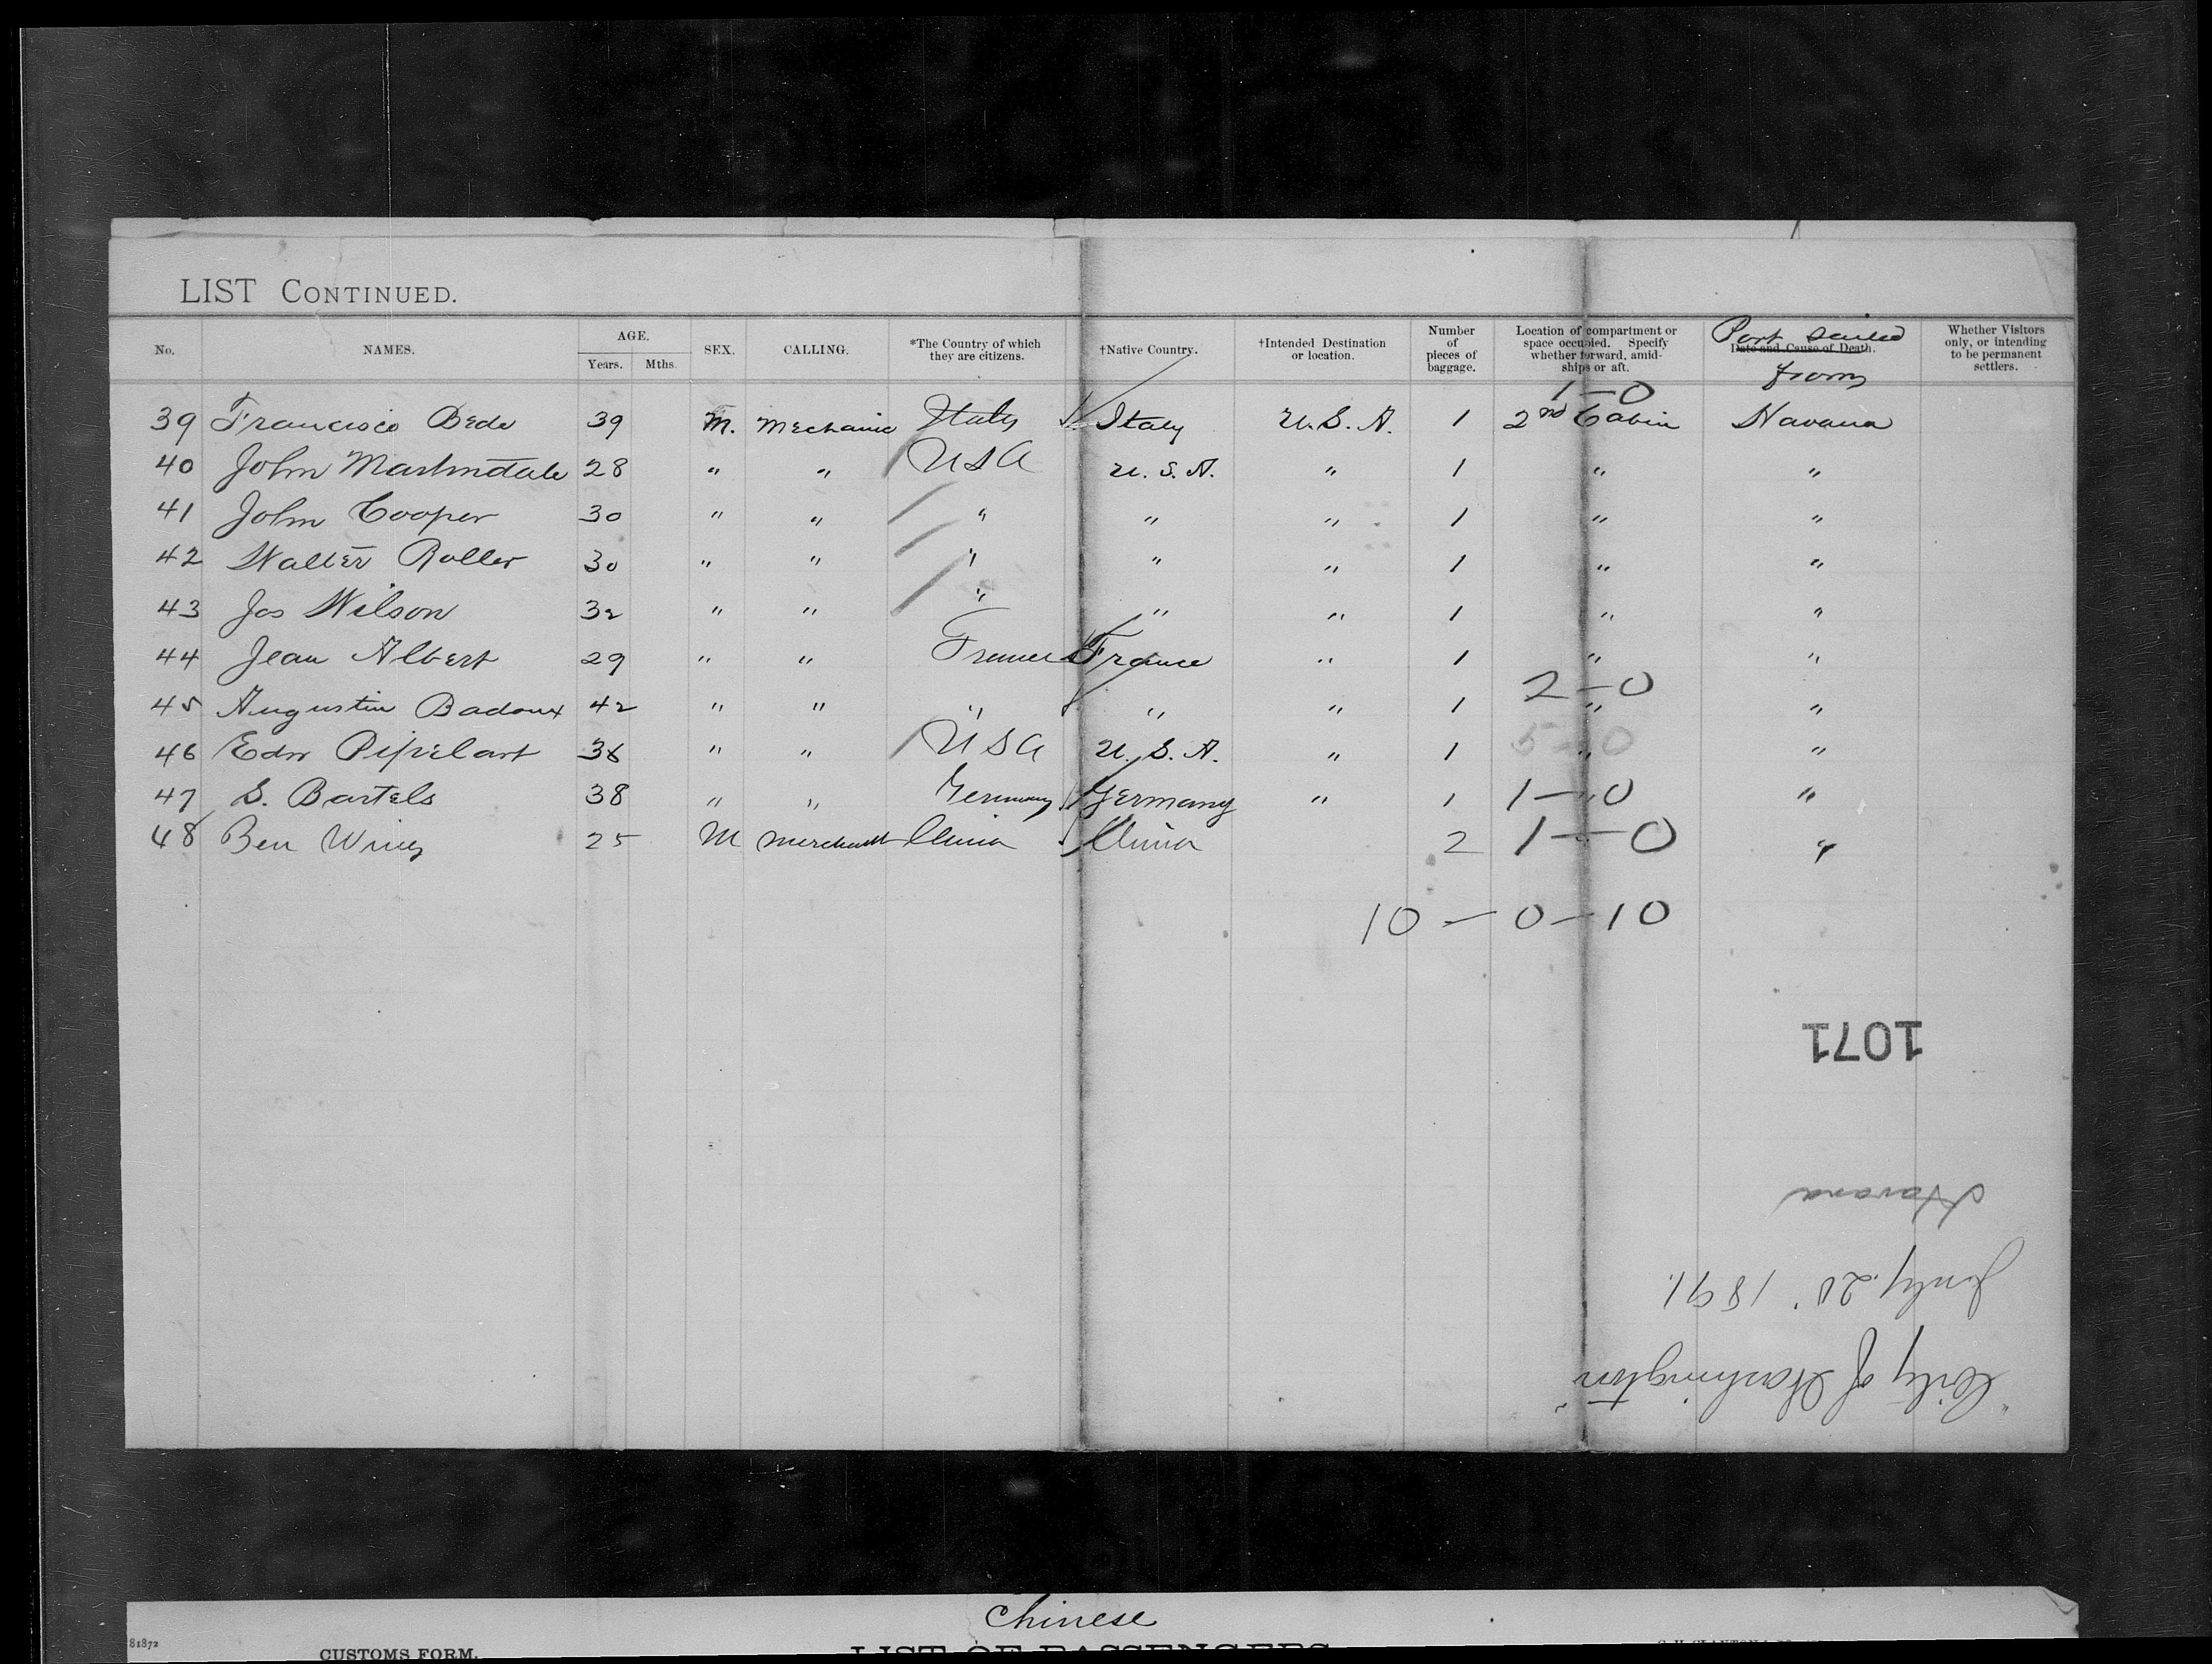 LIST CONTINUED.
No. NAMES. AGE. Years. Mths. SEX. CALLING. *The Country of which they are citizens. †Native Country. †Intended Destination or location. Number of pieces of baggage. Location of compartment or space occupied. Specify whether forward, amidships or aft. Date and Cause of Death. Port sailed from Whether Visitors only, or intending to be permanent settlers.
1—0
39 Francisco Bede 39 M. Mechanic Italy Italy U.S.A. 1 2nd Cabin Havana
40 John Martindale 28 " " USA U.S.A. " 1 " "
41 John Cooper 30 " " " " " 1 " "
42 Walter Roller 30 " " " " " 1 " "
43 Jos Wilson 32 " " " " " 1 " "
44 Jean Albert 29 " " France France " 1 " "
2—0
45 Augustin Badoux 42 " " " " " 1 " "
46 Edw 36 " " USA U.S.A. " 1 5—0 " "
47 S. Bartels 38 " " Germany Germany " 1 1—0 " "
48 Ben Wing 25 M Merchant China China 2 1—0 "
10—0—10
1071
Havana
20. 1891.
"City of Washington"
Chinese
81872
CUSTOMS FORM.
LIST OF PASSENGERS